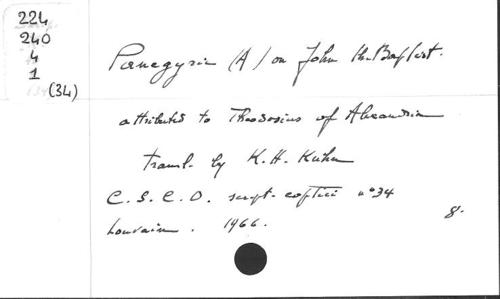 224
240
4
1
(34)
Panegyric (A) on John the Baptist.
attributed to Theodosius of Alexandria
transl. by K.H. Kuhn
C.S.C.O. script. coptici n° 34
Louvain. 1966.
8.